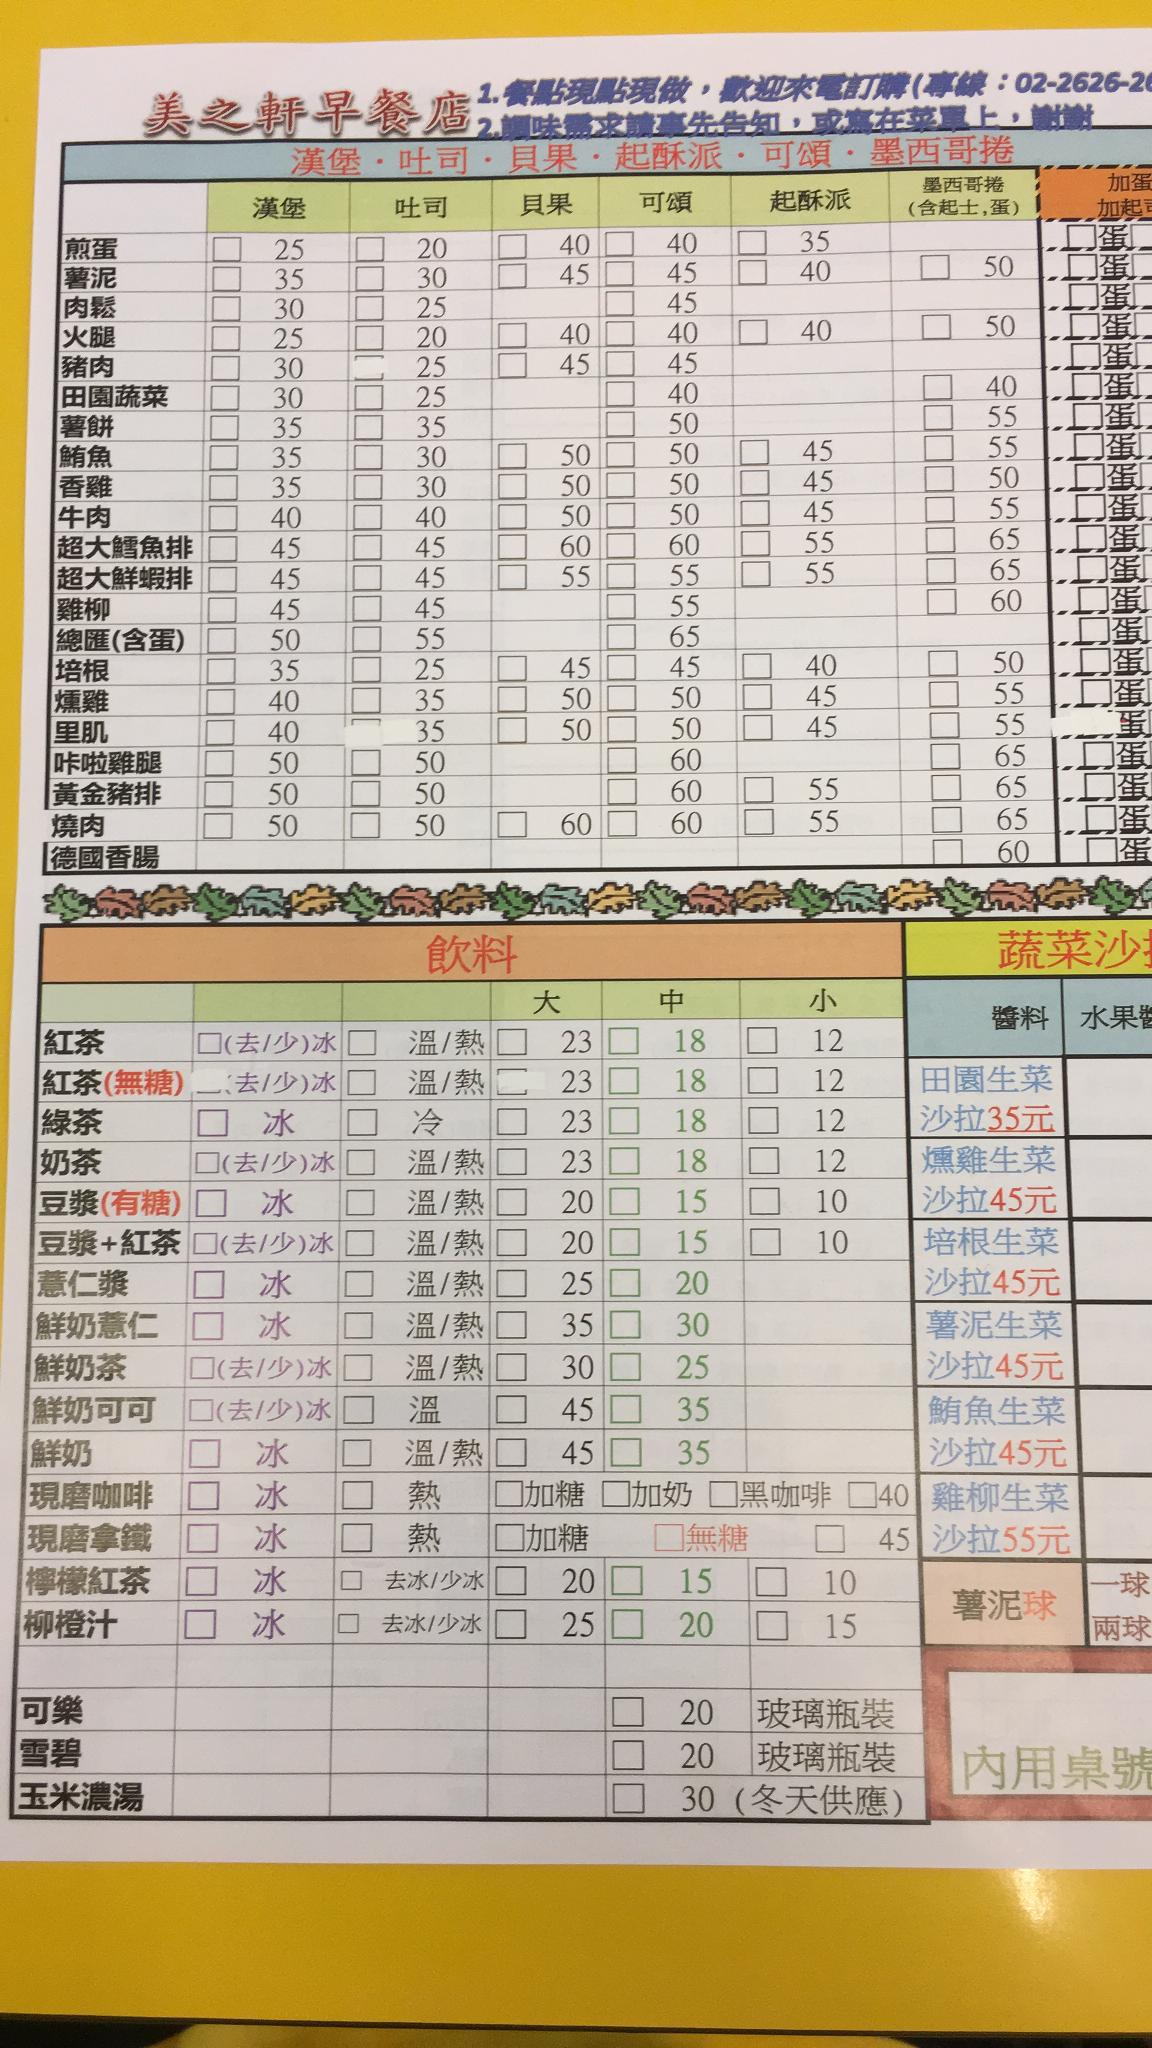 美之軒早餐店
1.餐點現點現做，歡迎來電訂購(專線：02-2626-26
2.調味需求請事先告知，或寫在菜單上，謝謝
漢堡·吐司·貝果·起酥派·可頌·墨西哥捲
漢堡 吐司 貝果 可頌 起酥派 墨西哥捲(含起士,蛋) 加蛋 加起司
煎蛋 □ 25 □ 20 □ 40 □ 40 □ 35 □蛋□
薯泥 □ 35 □ 30 □ 45 □ 45 □ 40 □ 50 □蛋□
肉鬆 □ 30 □ 25 □ 45 □蛋□
火腿 □ 25 □ 20 □ 40 □ 40 □ 40 □ 50 □蛋□
豬肉 □ 30 □ 25 □ 45 □ 45 □蛋□
田園蔬菜 □ 30 □ 25 □ 40 □ 40 □蛋□
薯餅 □ 35 □ 35 □ 50 □ 55 □蛋□
鮪魚 □ 35 □ 30 □ 50 □ 50 □ 45 □ 55 □蛋□
香雞 □ 35 □ 30 □ 50 □ 50 □ 45 □ 50 □蛋□
牛肉 □ 40 □ 40 □ 50 □ 50 □ 45 □ 55 □蛋□
超大鱈魚排 □ 45 □ 45 □ 60 □ 60 □ 55 □ 65 □蛋□
超大鮮蝦排 □ 45 □ 45 □ 55 □ 55 □ 55 □ 65 □蛋□
雞柳 □ 45 □ 45 □ 55 □ 60 □蛋□
總匯(含蛋) □ 50 □ 55 □ 65 □蛋□
培根 □ 35 □ 25 □ 45 □ 45 □ 40 □ 50 □蛋□
燻雞 □ 40 □ 35 □ 50 □ 50 □ 45 □ 55 □蛋□
里肌 □ 40 35 □ 50 □ 50 □ 45 □ 55 蛋□
咔啦雞腿 □ 50 □ 50 □ 60 □ 65 □蛋□
黃金豬排 □ 50 □ 50 □ 60 □ 55 □ 65 □蛋□
燒肉 □ 50 □ 50 □ 60 □ 60 □ 55 □ 65 □蛋□
德國香腸 □ 60 □蛋□
飲料
大 中 小
紅茶 □(去/少)冰 □ 溫/熱 □ 23 □ 18 □ 12
紅茶(無糖) □(去/少)冰 □ 溫/熱 □ 23 □ 18 □ 12
綠茶 □ 冰 □ 冷 □ 23 □ 18 □ 12
奶茶 □(去/少)冰 □ 溫/熱 □ 23 □ 18 □ 12
豆漿(有糖) □ 冰 □ 溫/熱 □ 20 □ 15 □ 10
豆漿+紅茶 □(去/少)冰 □ 溫/熱 □ 20 □ 15 □ 10
薏仁漿 □ 冰 □ 溫/熱 □ 25 □ 20
鮮奶薏仁 □ 冰 □ 溫/熱 □ 35 □ 30
鮮奶茶 □(去/少)冰 □ 溫/熱 □ 30 □ 25
鮮奶可可 □(去/少)冰 □ 溫 □ 45 □ 35
鮮奶 □ 冰 □ 溫/熱 □ 45 □ 35
現磨咖啡 □ 冰 □ 熱 □加糖 □加奶 □黑咖啡 □40
現磨拿鐵 □ 冰 □ 熱 □加糖 □無糖 □ 45
檸檬紅茶 □ 冰 □ 去冰/少冰 □ 20 □ 15 □ 10
柳橙汁 □ 冰 □ 去冰/少冰 □ 25 □ 20 □ 15
可樂 □ 20 玻璃瓶裝
雪碧 □ 20 玻璃瓶裝
玉米濃湯 □ 30 (冬天供應)
蔬菜沙拉
醬料 水果醬
田園生菜
沙拉35元
燻雞生菜
沙拉45元
培根生菜
沙拉45元
薯泥生菜
沙拉45元
鮪魚生菜
沙拉45元
雞柳生菜
沙拉55元
薯泥球 一球
兩球
內用桌號